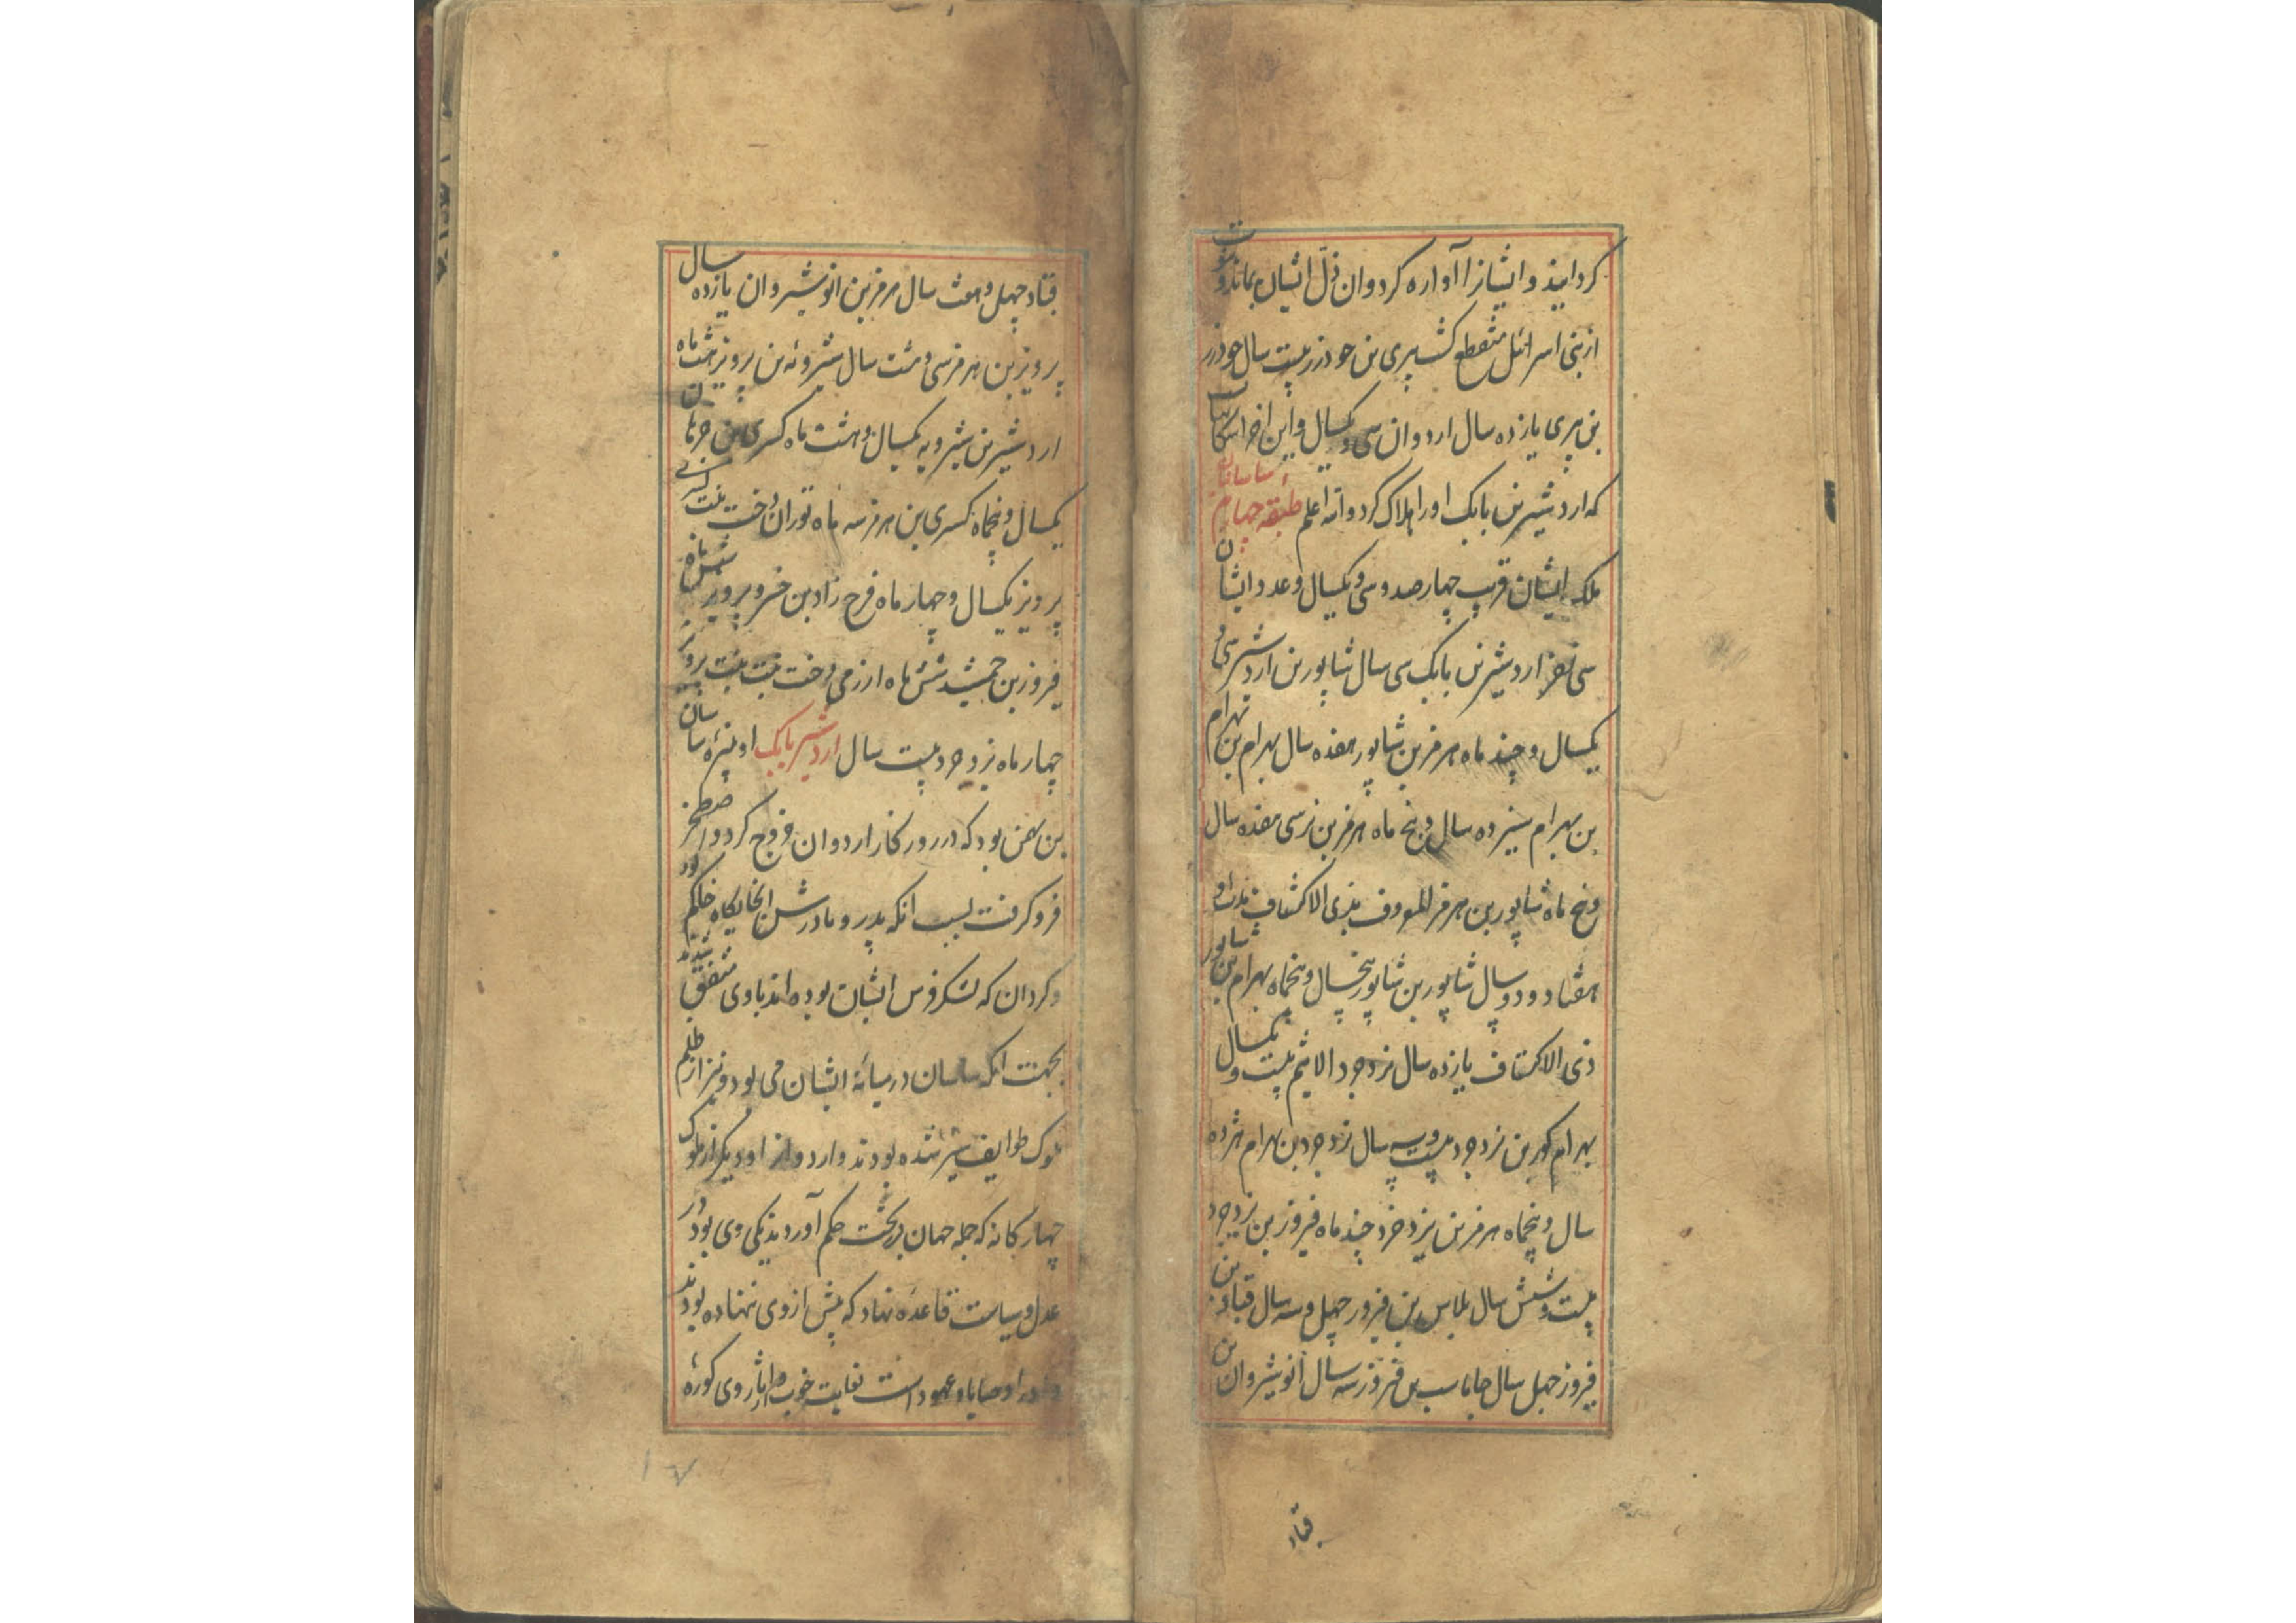 کردانید و ایشانرا آواره کرد و ان ذلّ ایشان بماند و نبوت
از بنی اسرائیل منقطع کشت پیری بن جودرز بیست سال جودرز
بن پیری یازده سال اردوان سی و یکسال و این اخر اشکانیانست
که اردشیر بن بابک اورا هلاک کرد والله اعلم طبقه چهارم ساسانیان
ملک ایشان قریب چهارصد و سی و یکسال و عدد ایشان
سی نفر اردشیر بن بابک سی سال شاپور بن اردشیر سی و
یکسال و چند ماه هرمز بن شاپور هفده سال بهرام بن بهرام
بن بهرام سیزده سال و پنج ماه هرمز بن نرسی هفده سال
و پنج ماه شاپور بن هرمز المعروف بذی الاکتاف مدت او
هفتاد و دو سال شاپور بن شاپور پنجسال و پنجماه بهرام بن شاپور
ذی الاکتاف یازده سال یزدجرد الاثیم بیست و یکسال
بهرام کور بن یزدجرد بیست و سه سال یزدجرد بن بهرام هژده
سال و پنجماه هرمز بن یزدجرد چند ماه فیروز بن یزدجرد
بیست و شش سال بلاس بن فیروز چهل و سه سال قباد بن
فیروز چهل سال جاماسب بن فیروز سه سال انوشیروان بن
قباد
قباد چهل و هفت سال هرمز بن انوشیروان یازده سال
پرویز بن هرمز سی و هشت سال شیروئه بن پرویز هشت ماه
اردشیر بن شیرویه یکسال و هشت ماه کسری بن خرماین
یکسال و پنجماه کسری بن هرمز سه ماه توران دخت بنت کسری
پرویز یکسال و چهار ماه فرخ زاد بن خسرو پرویز شش ماه
فیروز بن جمشید شش ماه ارزمی دخت بنت پرویز
چهار ماه یزدجرد بیست سال اردشیر بابک او نبیره ساسان
بن بهمن بود که در روزکار اردوان خروج کرد و اصطخر
فروکرفت بسبب انکه پدر و مادرش انجایکاه حاکم بود
و کردان که لشکر فرس ایشان بوده اند باوی متفق شدند
بجهت انکه ساسان در میانه ایشان می بود و نیز از ظلم
ملوک طوایف سیر شده بودند و اردوان او دیکر از ملوک
چهارکانه که جمله جهان بتحت حکم آوردند یکی وی بود در
عدل و سیاست قاعده نهاد که پیش از وی ننهاده بودند
و اورا وصایا و عهود است بغایت خوب و اثار وی کوره
۱۷